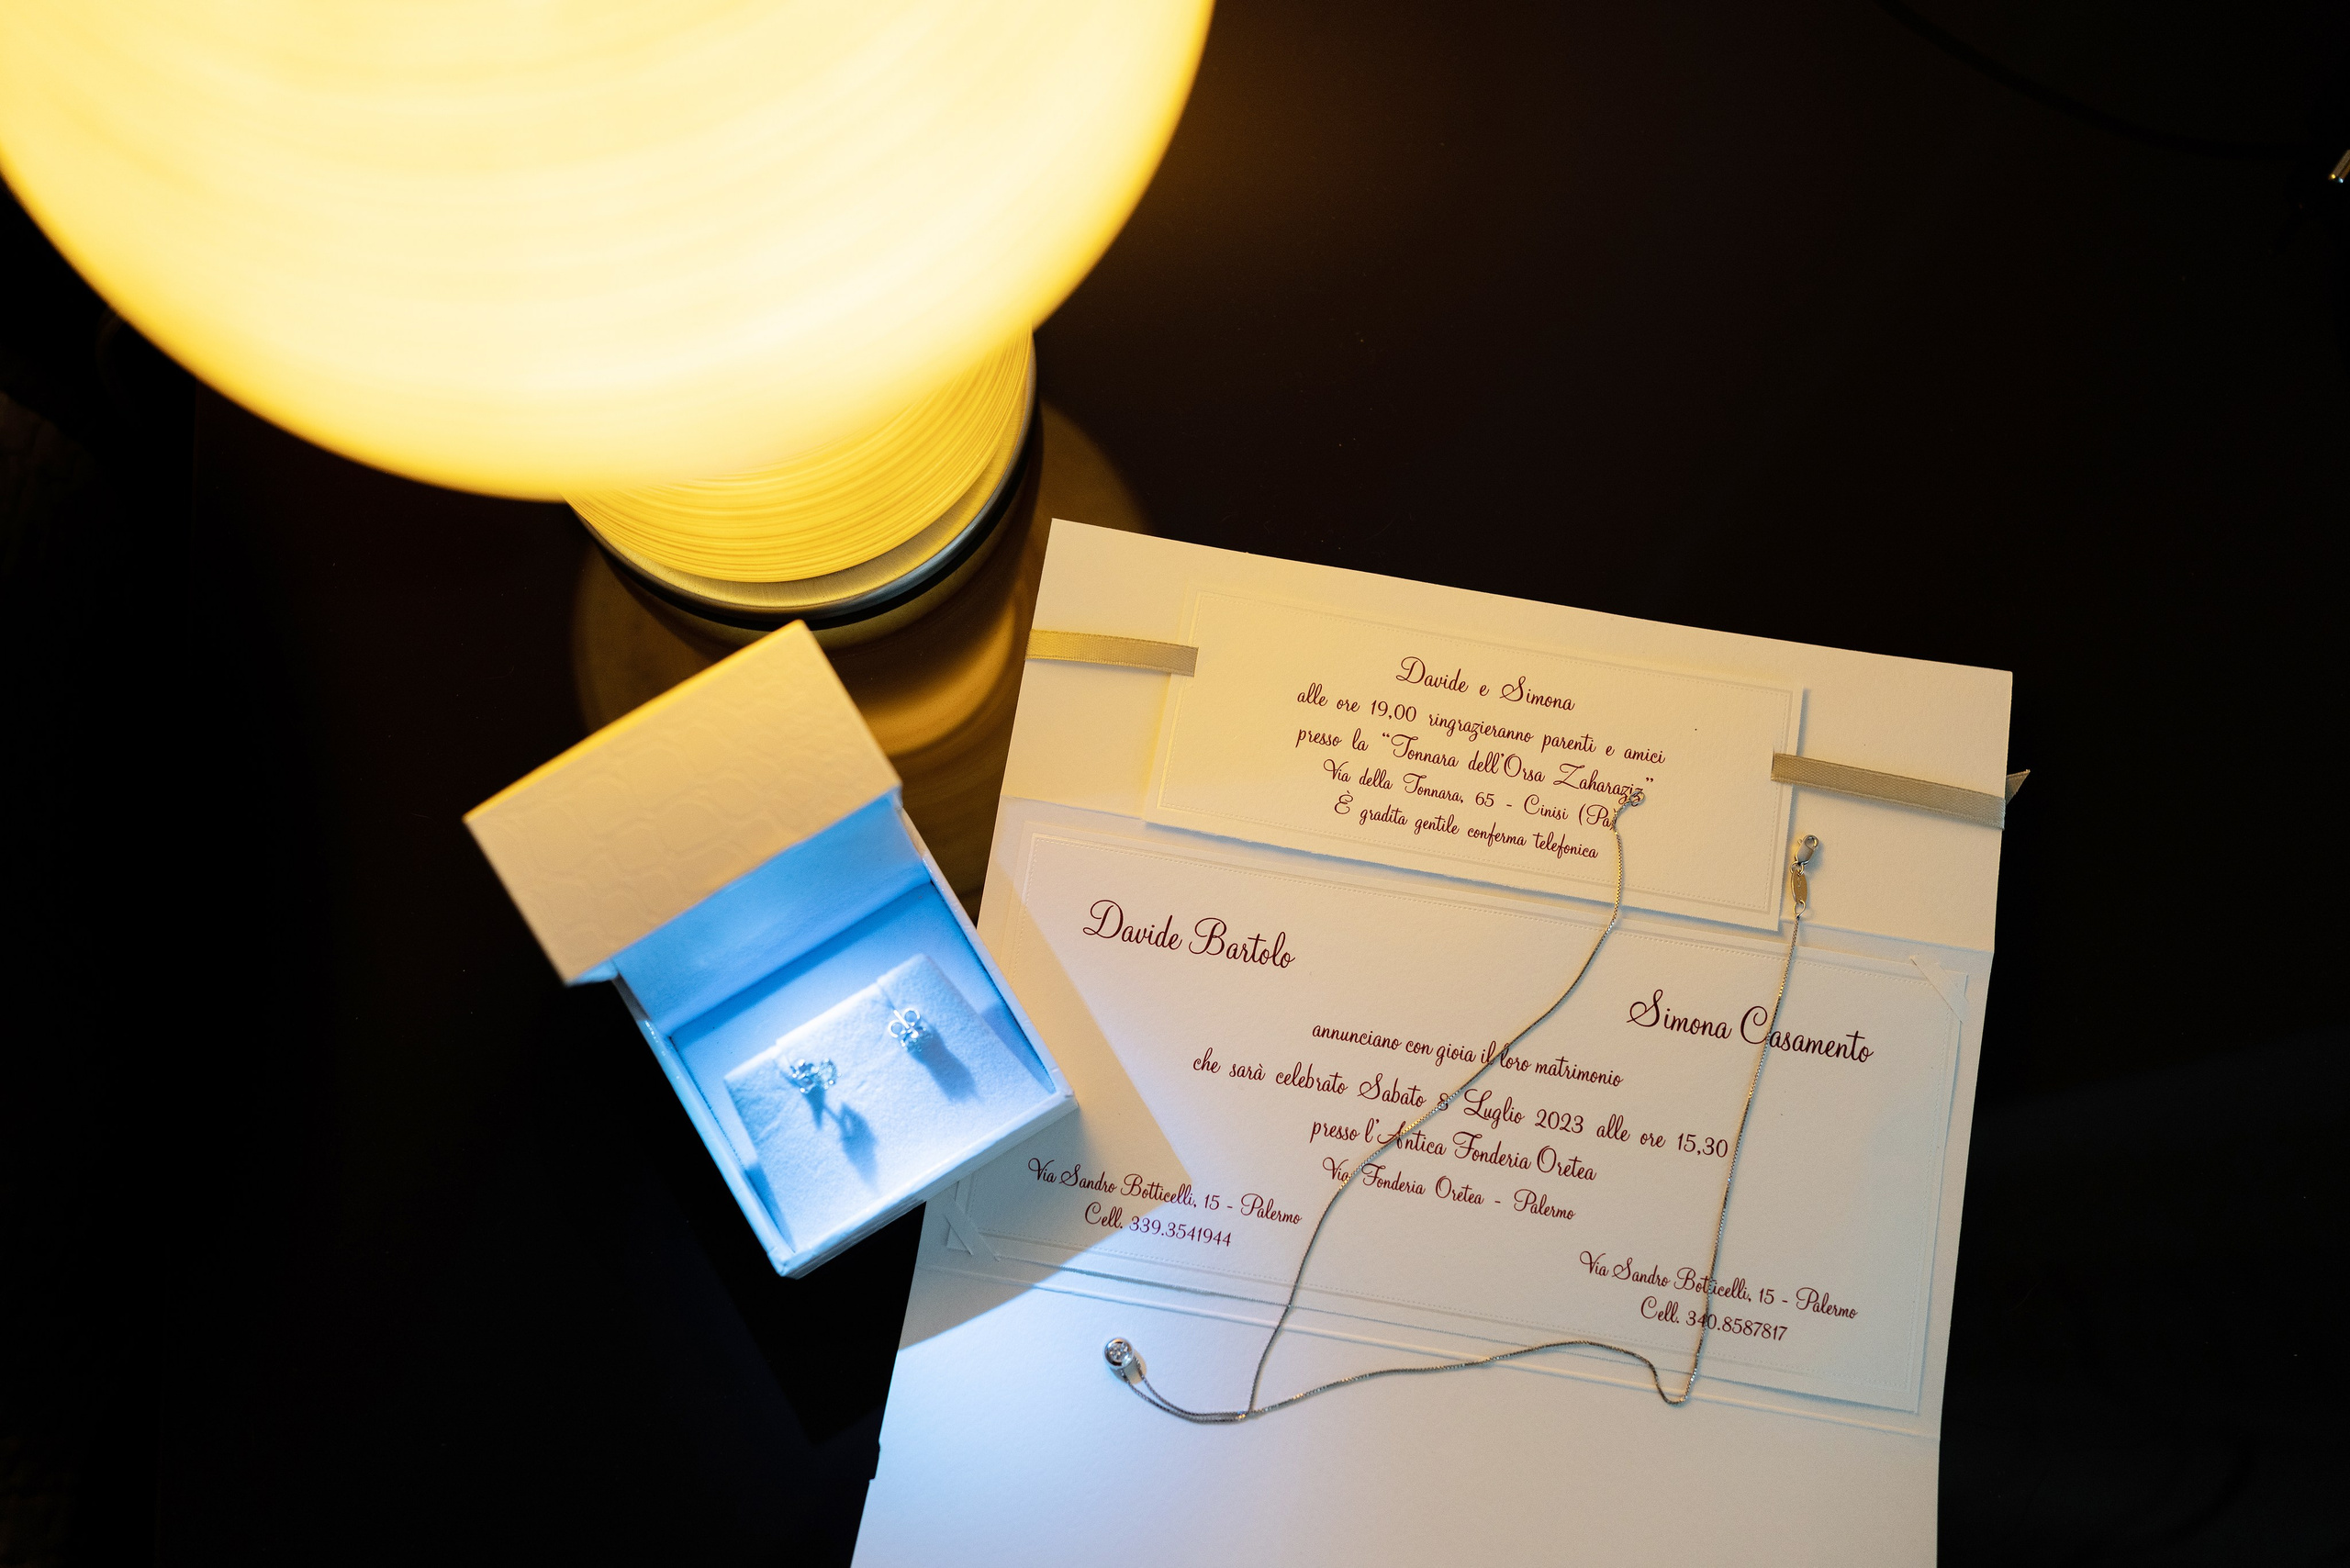 Davide e Simona
alle ore 19,00 ringrazieranno parenti e amici
presso la “Tonnara dell'Orsa Zaharaziz”
Via della Tonnara, 65 - Cinisi (Pa)
È gradita gentile conferma telefonica
Davide Bartolo
Simona Casamento
annunciano con gioia il loro matrimonio
che sarà celebrato Sabato 8 Luglio 2023 alle ore 15,30
presso l'Antica Fonderia Oretea
Via Fonderia Oretea - Palermo
Via Sandro Botticelli, 15 - Palermo
Cell. 339.3541944
Via Sandro Botticelli, 15 - Palermo
Cell. 340.8587817